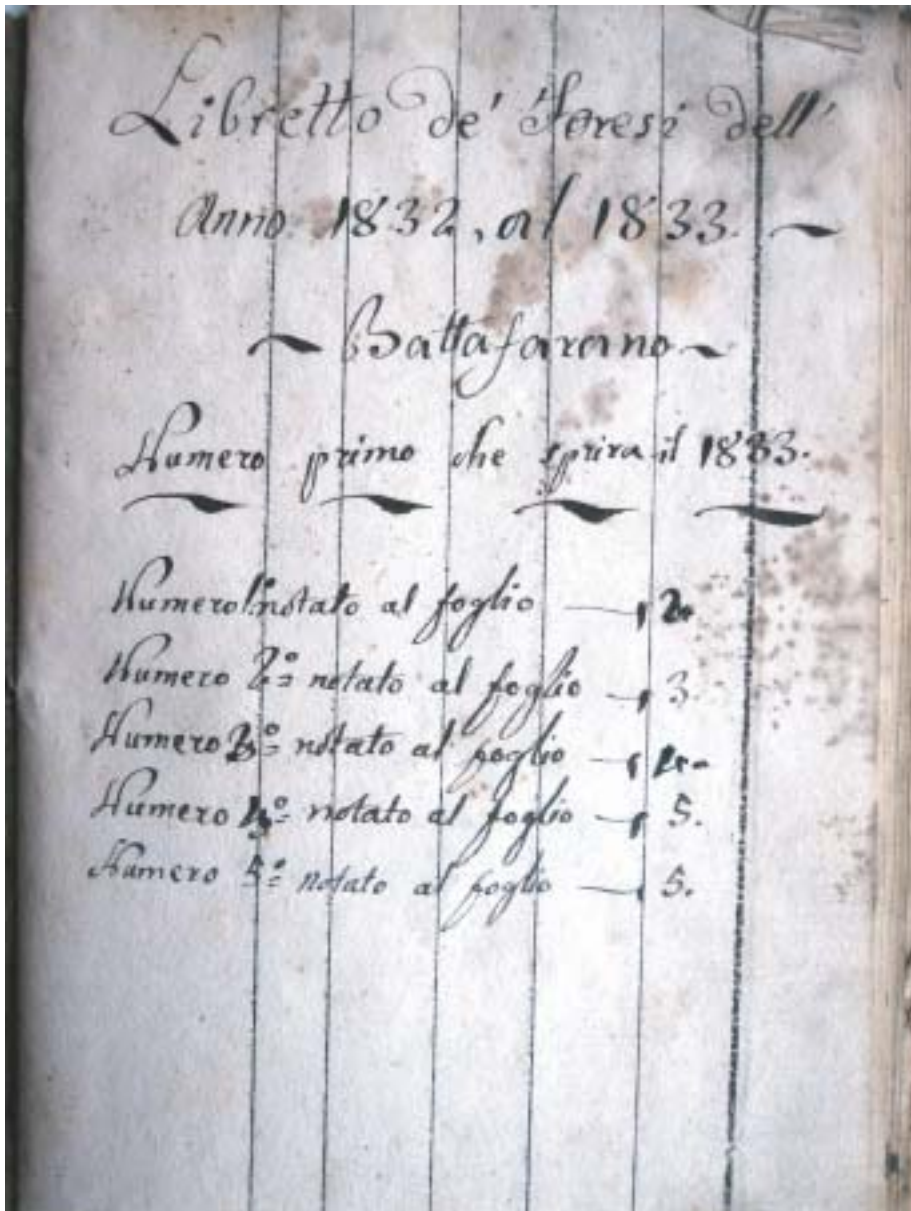 Libretto de' Foresi dell'
Anno 1832, al 1833.
~ Battafarano ~
Numero primo che spira il 1833.
Numero 1º notato al foglio — 2.
Numero 2º= notato al foglio — 3.
Numero 3º= notato al foglio — 4.
Numero 4º= notato al foglio — 5.
Numero 5º= notato al foglio — 5.